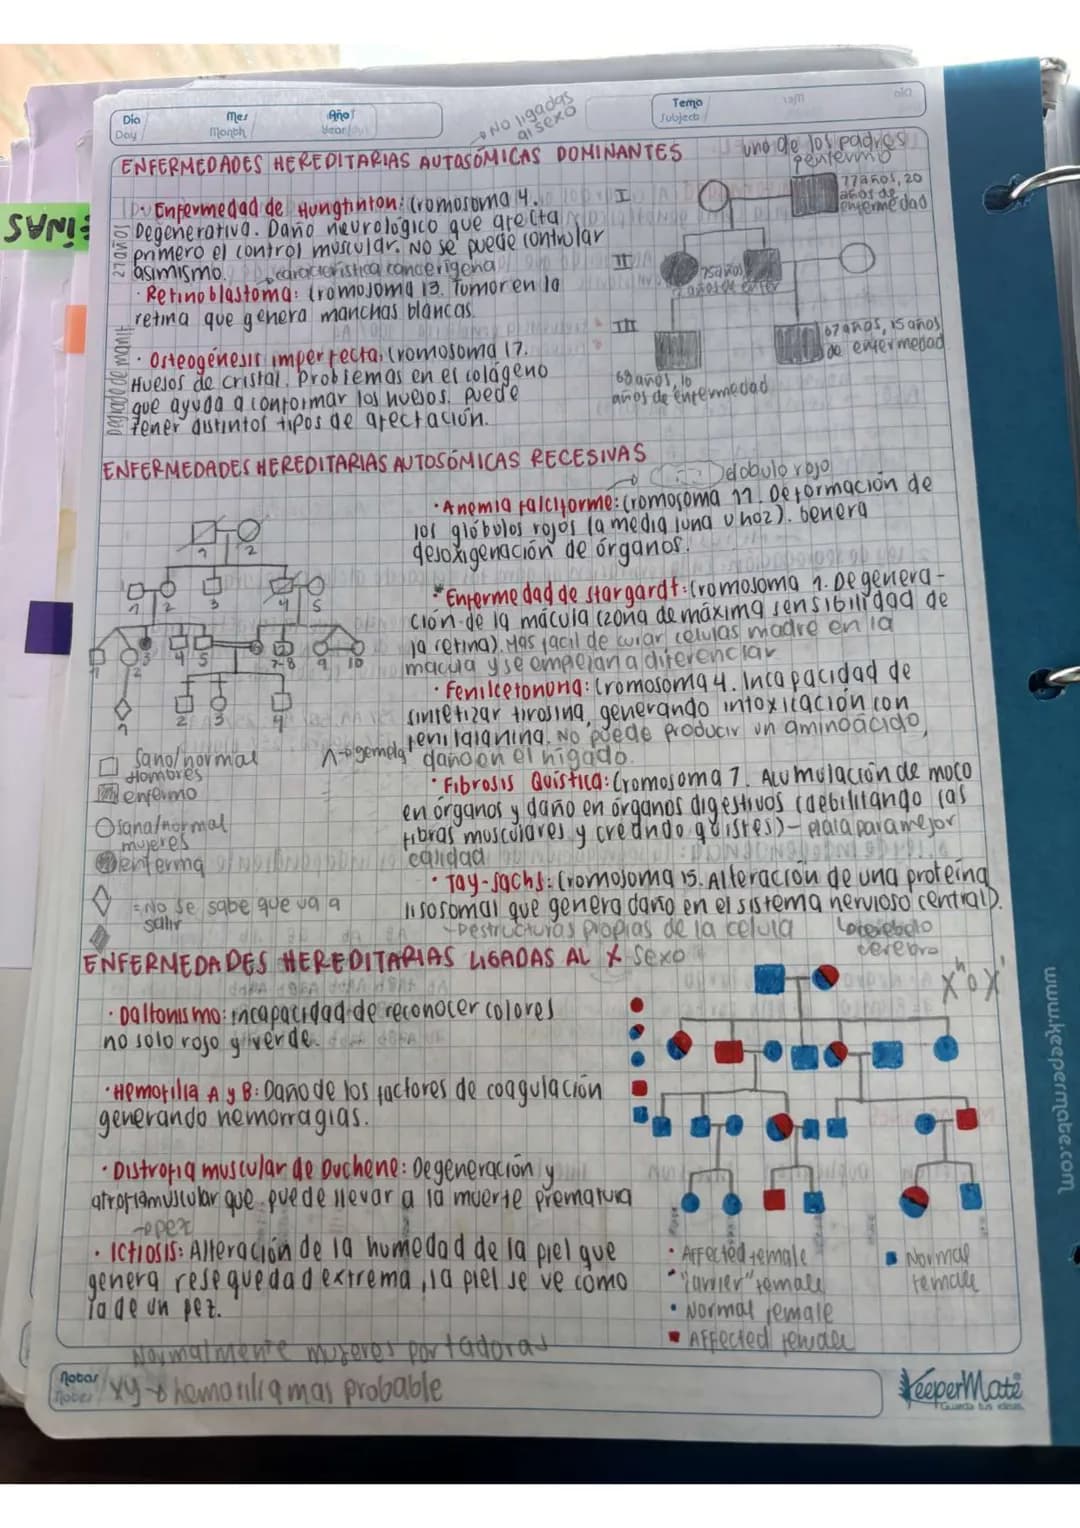 Día
Day
Mes
Month
Año
Year
→ No ligadas
al sexo
Tema
Subject
ENFERMEDADES HEREDITARIAS AUTOSÓMICAS DOMINANTES
uno de los padres
enfermo
· Enfermedad de Hungtinton: Cromosoma 4.
Degenerativa. Daño neurológico que afecta
primero el control múscular. No se puede controlar
asimismo.
27 años
característica cancerigena
· Retinoblastoma: Cromosoma 13. Tumor en la
retina que genera manchas blancas.
· Osteogénesis imperfecta: Cromosoma 17.
Huesos de cristal. Problemas en el colágeno
que ayuda a conformar los huesos. Puede
tener distintos tipos de afectación.
I
77 años, 20
años de
enfermedad
II
75 años
7 años de enfer
III
67 años, 15 años
de enfermedad
68 años, 10
años de enfermedad
ENFERMEDADES HEREDITARIAS AUTOSÓMICAS RECESIVAS
Globulo rojo
· Anemia falciforme: Cromosoma 11. Deformación de
los glóbulos rojos (a media luna u hoz). Genera
desoxigenación de órganos.
· Enfermedad de stargardt: Cromosoma 1. Degenera-
ción de la mácula (zona de máxima sensibilidad de
la retina). Mas facil de curar, celulas madre en la
macula y se empiezan a diferenciar
· Fenilcetonuria: Cromosoma 4. Incapacidad de
sintetizar tirosina, generando intoxicación con
fenilalanina. No puede producir un aminoácido,
daño en el hígado.
· Fibrosis Quística: Cromosoma 7. Acumulación de moco
en órganos y daño en órganos digestivos (debilitando las
fibras musculares y creando quistes) - para mejor
calidad
· Tay-sachs: Cromosoma 15. Alteración de una proteína
lisosomal que genera daño en el sistema nervioso central).
Destructuras propias de la celula
cerebelo
cerebro
1 2
1 2 3 4 5
1 2 3 4 5 6 7-8 9 10
1 2 3 4
Sano/normal
Hombres
enfermo
→ gemela
Osana/normal
mujeres
enferma
= No se sabe que va a
salir
ENFERMEDADES HEREDITARIAS LIGADAS AL X - Sexo
· Daltonismo: incapacidad de reconocer colores
no solo rojo y verde.
· Hemofilia A y B: Daño de los factores de coagulación
generando hemorragias.
· Distrofia muscular de Duchene: Degeneración y
atrofia muscular que puede llevar a la muerte prematura
→ pez
· Ictiosis: Alteración de la humedad de la piel que
genera resequedad extrema, la piel se ve como
la de un pez.
· Affected female
· "Carrier" female
· Normal female
▪ Affected female
▪ Normal
female
Normalmente mujeres portadoras
Notas
Notes
xy → hemofilia mas probable
KeeperMate
Guarda tus ideas.
www.keepermate.com